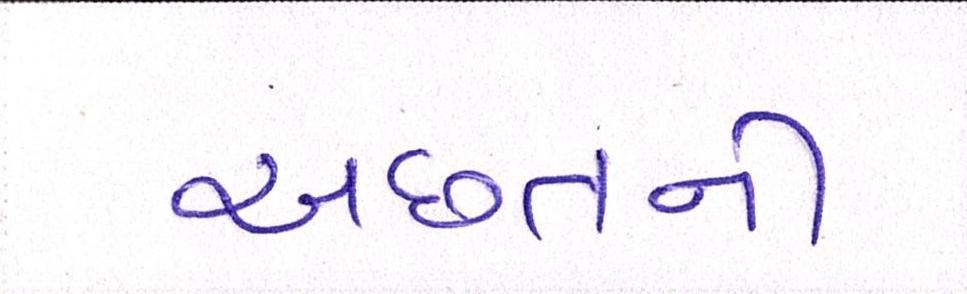 અછતની